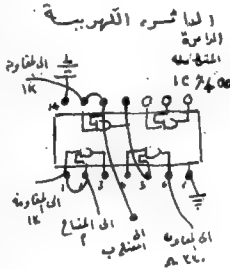 الدائرة الكهربية
الدائرة
المتكاملة
IC 7400
الى المقاومة
1K
14
1 2 3 4 5 6 7
الى المقاومة
1K
الى المفتاح
أ
الى
المفتاح ب
الى المقاومة
220 Ω